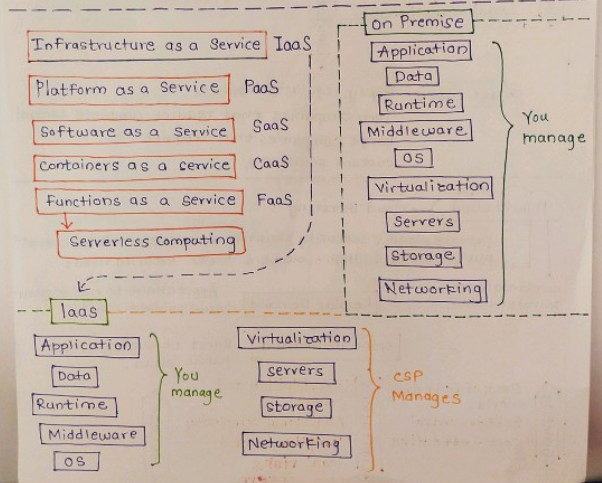 Infrastructure as a Service IaaS
Platform as a Service PaaS
Software as a Service SaaS
Containers as a service CaaS
Functions as a Service FaaS
Serverless Computing
On Premise
Application
Data
Runtime
Middleware
OS
Virtualization
Servers
Storage
Networking
You
manage
Iaas
Application
Data
Runtime
Middleware
OS
You
manage
Virtualization
Servers
Storage
Networking
CSP
Manages